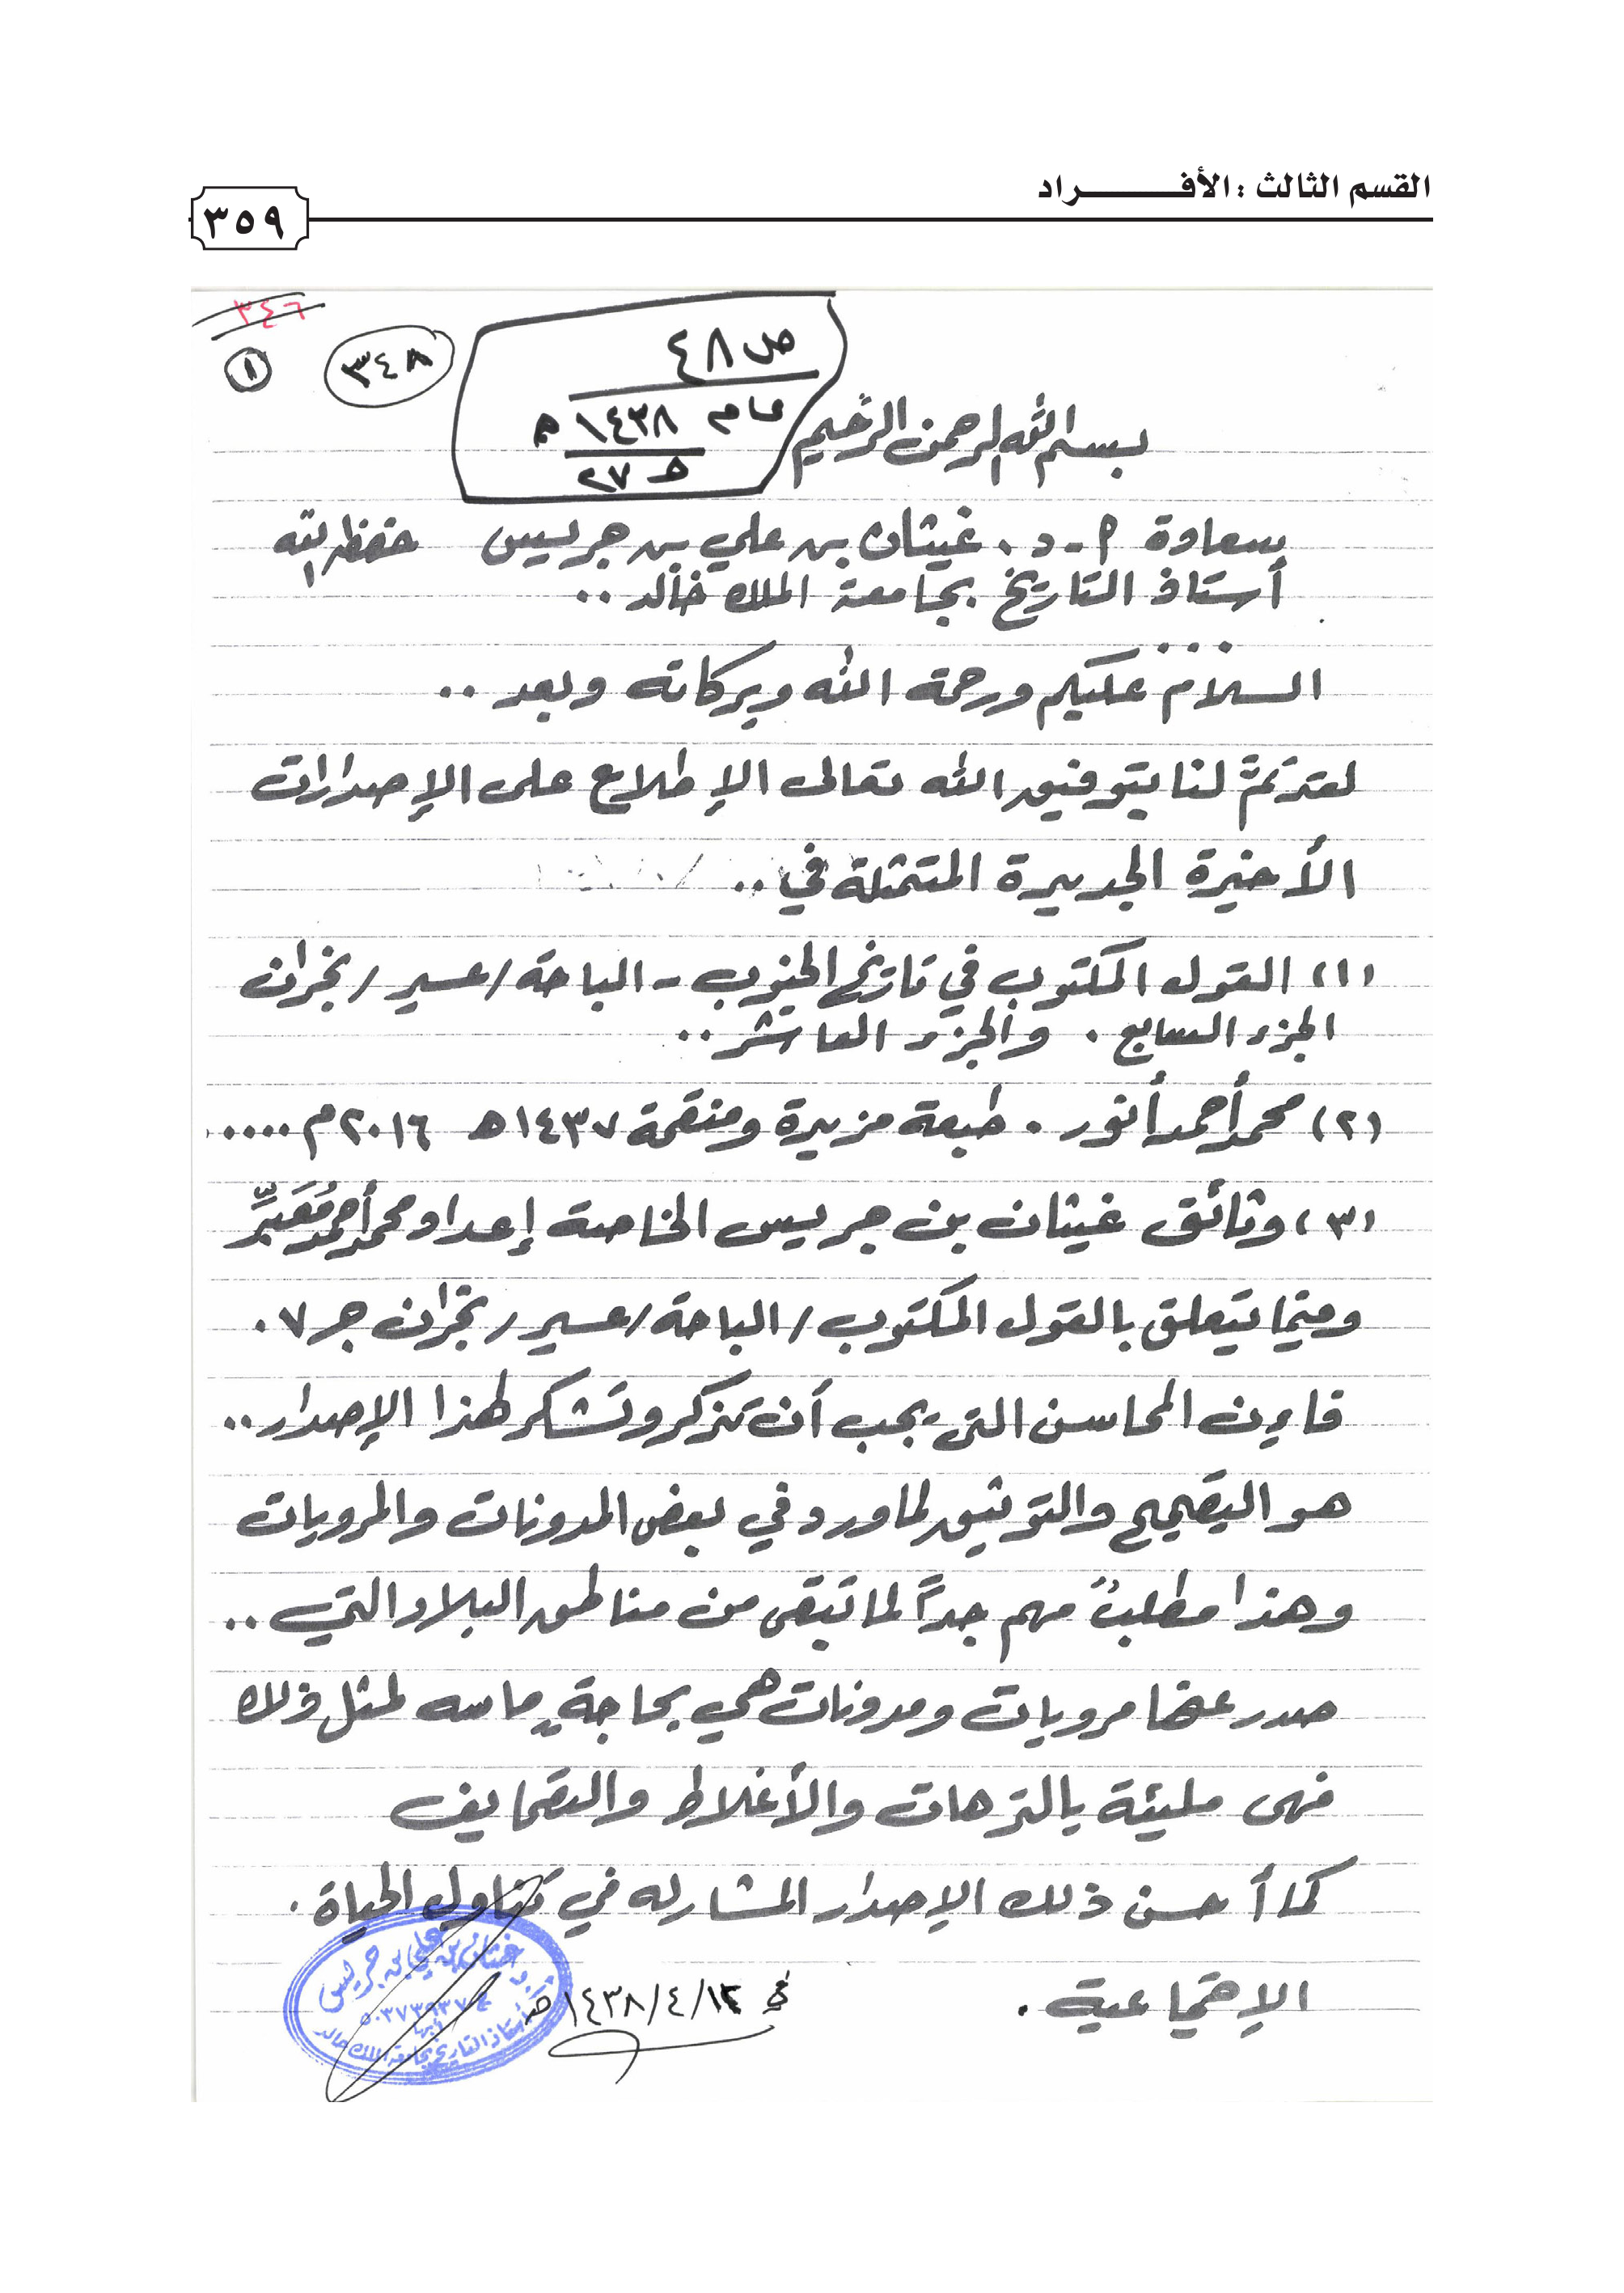 القسم الثالث : الأفــــــــراد
٣٥٩
٣٤٦
١
٣٤٨
ص ٤٨
عام ١٤٣٨ هـ
ط ٢٧
بسم الله الرحمن الرحيم
سعادة أ-د. غيثان بن علي بن جريس حفظه الله
أستاذ التاريخ بجامعة الملك خالد ..
السلام عليكم ورحمة الله وبركاته وبعد ..
لقد تمَّ لنا بتوفيق الله تعالى الإطلاع على الإصدارات
الأخيرة الجديدة المتمثلة في ..
(١) القول المكتوب في تاريخ الجنوب - الباحة/عسير/نجران
الجزء السابع . والجزء العاشر ..
(٢) محمد أحمد أنور . طبعة مزيدة ومنقحة ١٤٣٧هـ ٢٠١٦م .....
(٣) وثائق غيثان بن جريس الخاصة إعداد محمد أحمد مُعَبِّر
وفيما يتعلق بالقول المكتوب/الباحة/عسير/نجران جـ ٧ .
فإن من المحاسن التي يجب أن تذكر وتشكر لهذا الإصدار ..
هو التصحيح والتوثيق لما ورد في بعض المدونات والمرويات
وهذا مطلبٌ مهم جداً لما تبقى من مناطق البلاد التي ..
صدر عنها مرويات ومدونات هي بحاجةٍ ماسه لمثل ذلك
فهي مليئة بالترهات والأغلاط والتصحايف
كما أحسن ذلك الإصدار المشار له في تناول الحياة .
الإجتماعية .
في ١٤٣٨/٤/١٢هـ
أ.د غيثان بن علي بن جريس
ج ٠٥٠٣٧٣٩٣٧
أبها
أستاذ التاريخ بجامعة الملك خالد